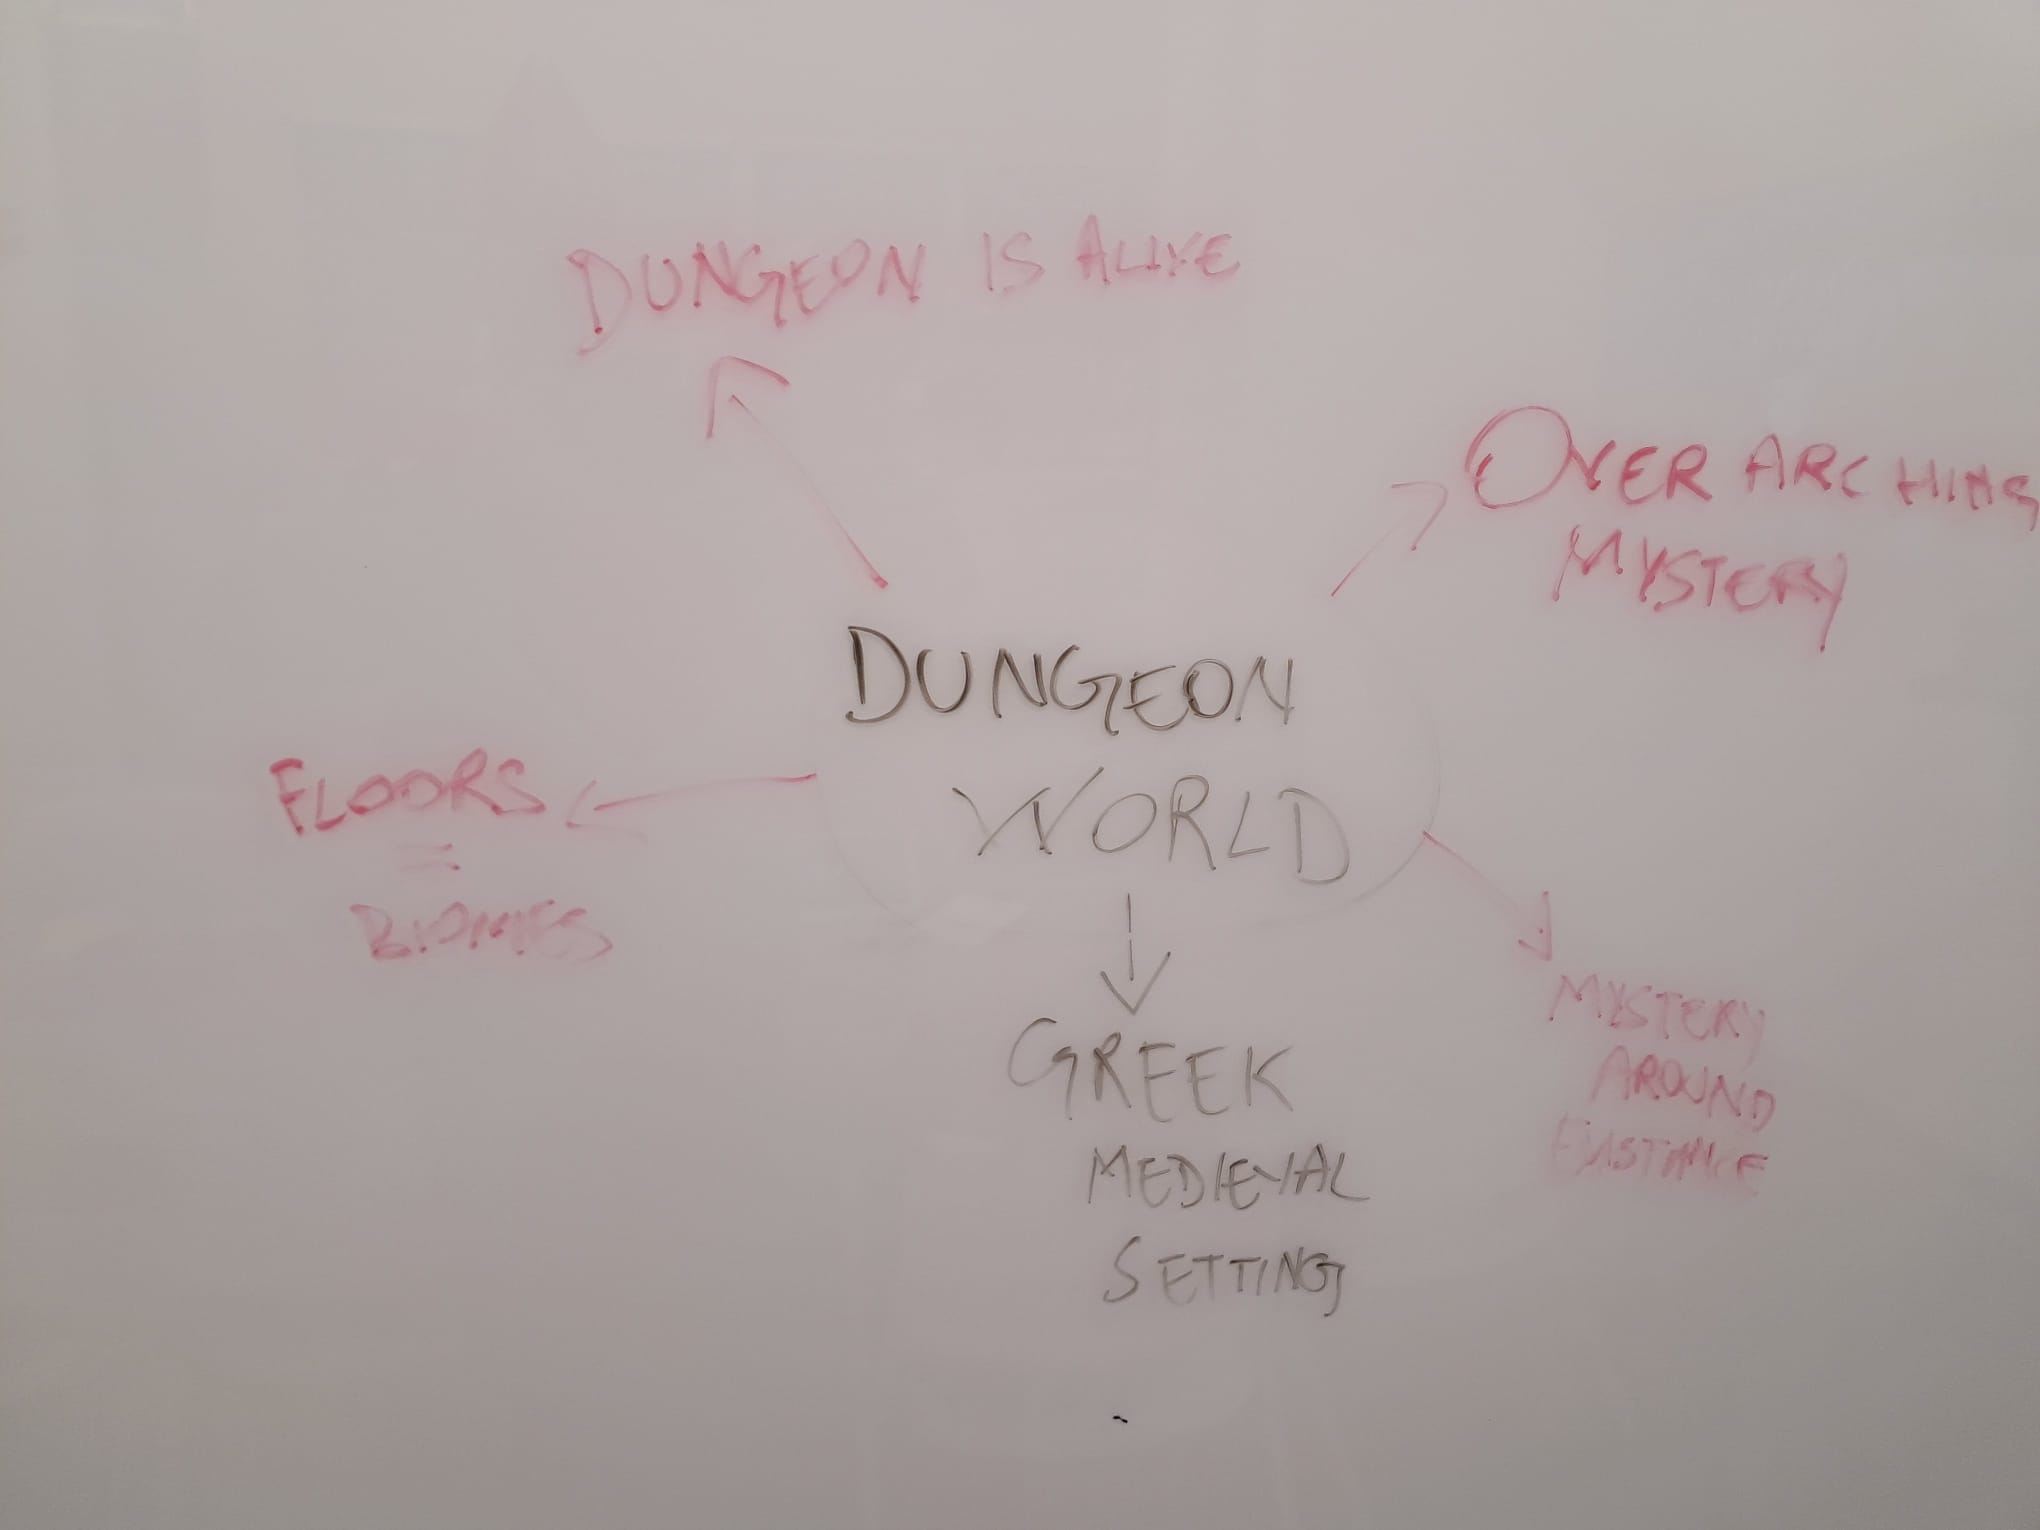 DUNGEON IS ALIVE
OVER ARCHING
MYSTERY
DUNGEON
WORLD
FLOORS
=
BIOMES
GREEK
MEDIEVAL
SETTING
MYSTERY
AROUND
EXISTANCE